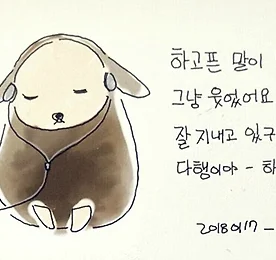 하고픈 말이
그냥 웃었어요
잘 지내고 있구
다행이야 - 하
20180117 -